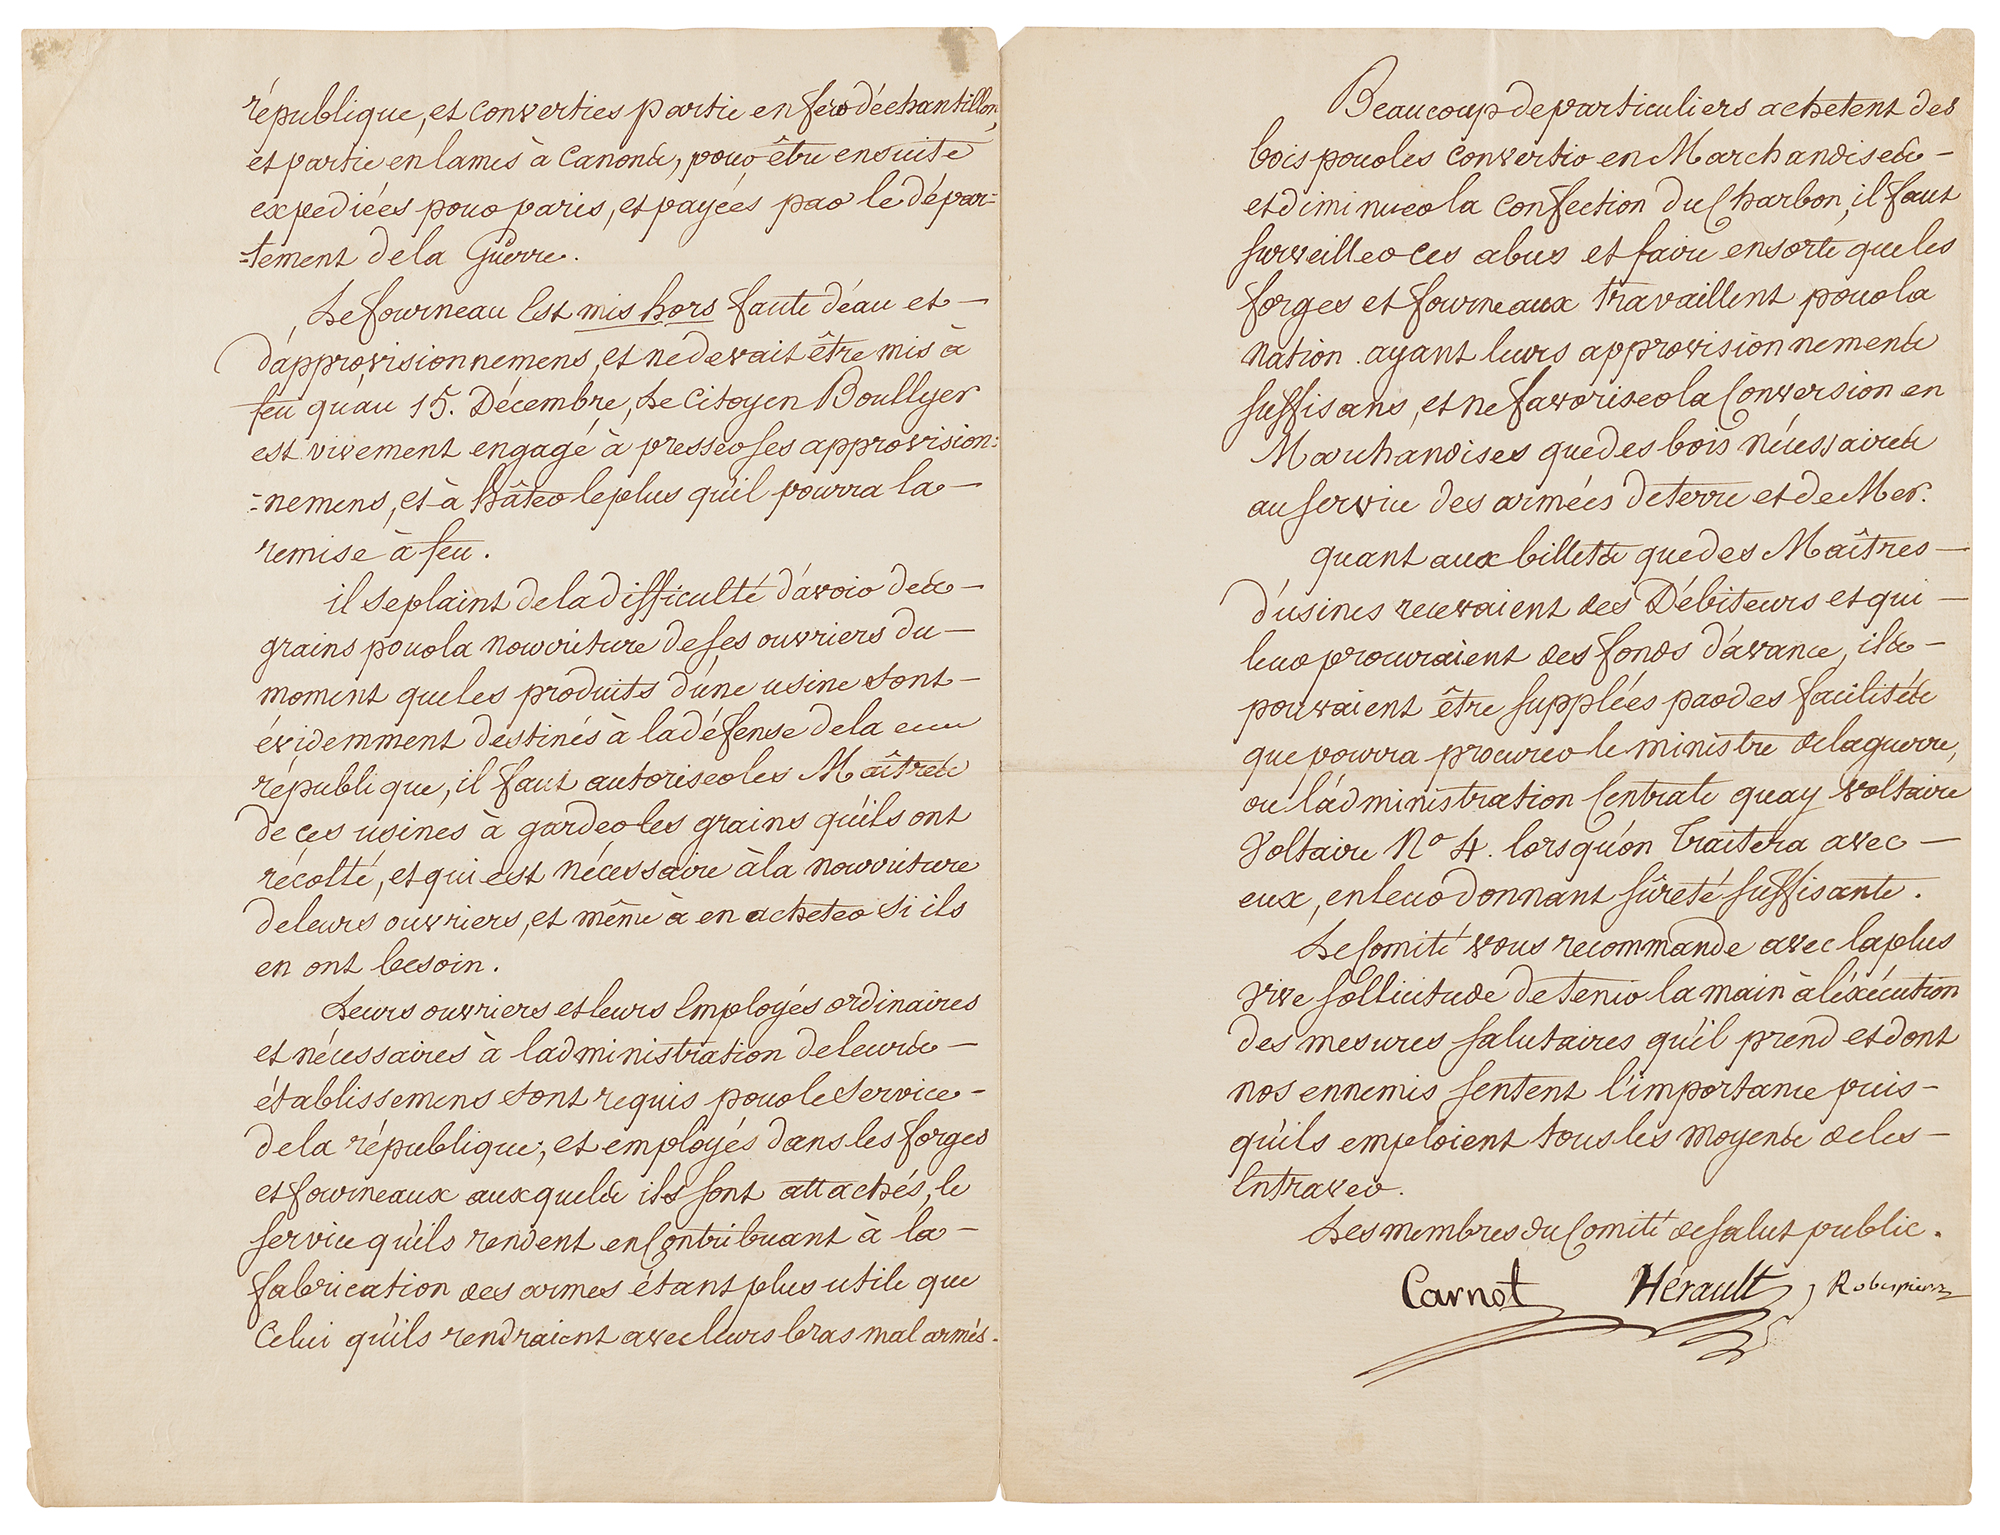 république, et converties partie en fers d'échantillon,
et partie en lames à Canons, pour être ensuite
expediées pour paris, et payées par le dépar=
=tement de la Guerre.
Le fourneau Est mis hors faute d'éau et —
d'approvisionnemens, et ne devait être mis à
feu qu'au 15. Décembre, Le Citoyen Boullyer
est vivement engagé à presser ses approvision=
=nemens, et à hâter le plus qu'il pourra la —
remise à feu.
il se plaint de la difficulté d'avoir des —
grains pour la nourriture de ses ouvriers du —
moment que les produits d'une usine sont —
évidemment destinés à la défense de la
république, il faut autoriser les Maîtres
de ces usines à garder les grains qu'ils ont
récolté, et qui est nécessaire à la nourriture
de leurs ouvriers, et même à en acheter si ils
en ont besoin.
Leurs ouvriers et leurs Employés ordinaires
et nécessaires à l'administration de leurs —
établissemens sont requis pour le service —
de la république; et employés dans les forges
et fourneaux auxquels ils sont attachés, le
service qu'ils rendent en Contribuant à la —
fabrication des armes étant plus utile que
Celui qu'ils rendraient avec leurs bras mal armés.
Beaucoup de particuliers achetent des
bois pour les convertir en Marchandises —
et diminuer la confection du Charbon, il faut
surveiller ces abus et faire ensorte que les
forges et fourneaux travaillent pour la
nation. ayant leurs approvisionnemens
suffisans, et ne favoriser la Conversion en
Marchandises que des bois nécessaires
au service des armées de terre et de Mer.
quant aux billets que des Maîtres —
d'usines recevaient des Débiteurs et qui —
leur procuraient des fonds d'avance, ils —
pouvaient être supplées par des facilités
que pourra procurer le ministre de la guerre,
ou l'administration Centrale quay voltaire
Voltaire No 4. lorsqu'on traitera avec —
eux, en leur donnant sûreté suffisante.
Le Comité vous recommande avec la plus
vive sollicitude de tenir la main à l'éxécution
des mesures salutaires qu'il prend et dont
nos ennemis sentent l'importance puis —
qu'ils emploient tous les moyens de les —
Entraver.
Les membres du Comité de Salut public.
Carnot Hérault Robespierre